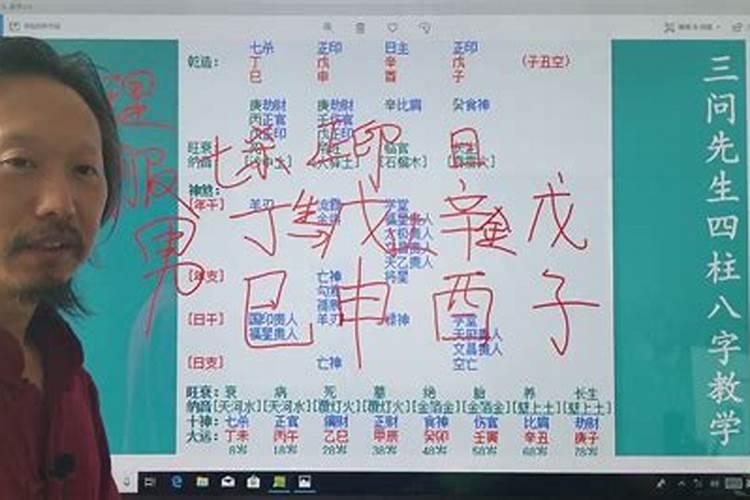 七杀 正印 日主 正印
乾造: 丁 戊 辛 戊 (子丑空)
巳 申 酉 子
庚劫财 庚劫财 辛比肩 癸食神
丙正官 壬伤官
戊正印 戊正印
旺衰:
纳音
神煞:
[年干] 羊刃 学堂
福星贵人
太极贵人
天乙贵人
[年支] 亡神 将星
[日干] 国印贵人 羊刃 禄神 学堂
福星贵人 天厨贵人
文昌贵人
[日支] 亡神 空亡
旺衰: 衰 病 死 墓 绝 胎 养 长生
纳音 [天河水] [天河水] [覆灯火] [覆灯火] [金箔金] [金箔金] [壁上土] [壁上土]
十神: 七杀 正官 偏财 正财 食神 伤官 比肩 劫财
大运: 丁未 丙午 乙巳 甲辰 癸卯 壬寅 辛丑 庚子
8岁 18岁 28岁 38岁 48岁 58岁 68岁 78岁
七杀 正印 日
丁 戊 辛金 戊
巳 申 酉 子
男
三问先生四柱八字教学